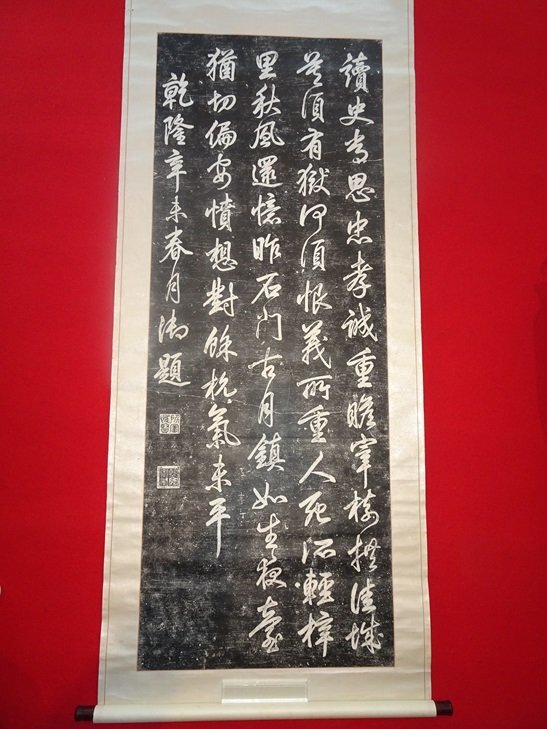 讀史常思忠孝誠重瞻宰樹拱佳城
莫須有獄何須恨義所重人死所輕梓
里秋風還憶昨石門古月鎮如生夜臺
猶切偏安憤想對餘杭氣未平
乾隆辛未春月御題